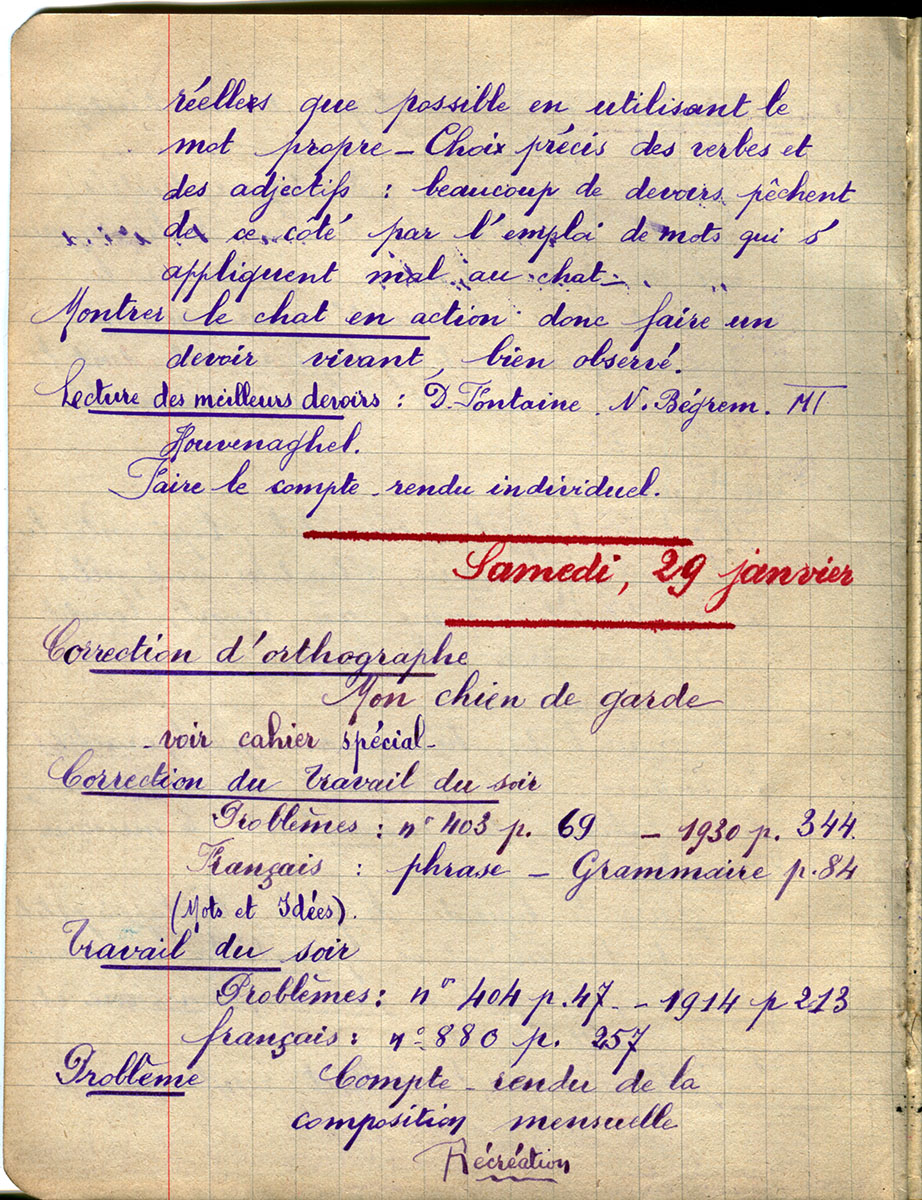 réelles que possible en utilisant le
mot propre _ Choix précis des verbes et
des adjectifs : beaucoup de devoirs pêchent
de ce côté par l'emploi de mots qui s'
appliquent mal au chat _
Montrer le chat en action . donc faire un
devoir vivant, bien observé.
Lecture des meilleurs devoirs : D. Fontaine . N. Bégrem . MT
Houvenaghel.
Faire le compte _ rendu individuel.
Samedi, 29 janvier
Correction d'orthographe
Mon chien de garde
_ voir cahier spécial _
Correction du travail du soir
Problèmes : n° 403 p. 69 _ 1930 p. 344.
Français : phrase _ Grammaire p. 84
(Mots et Idées).
Travail du soir
Problèmes : n° 404 p. 47 _ 1914 p 213
français : n° 880 p. 257
Problème Compte _ rendu de la
composition mensuelle
Récréation